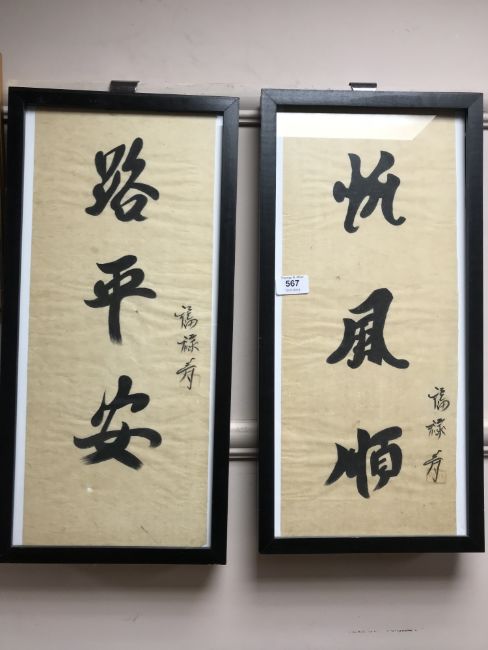 路平安
福祿壽
帆風順
福祿壽
567